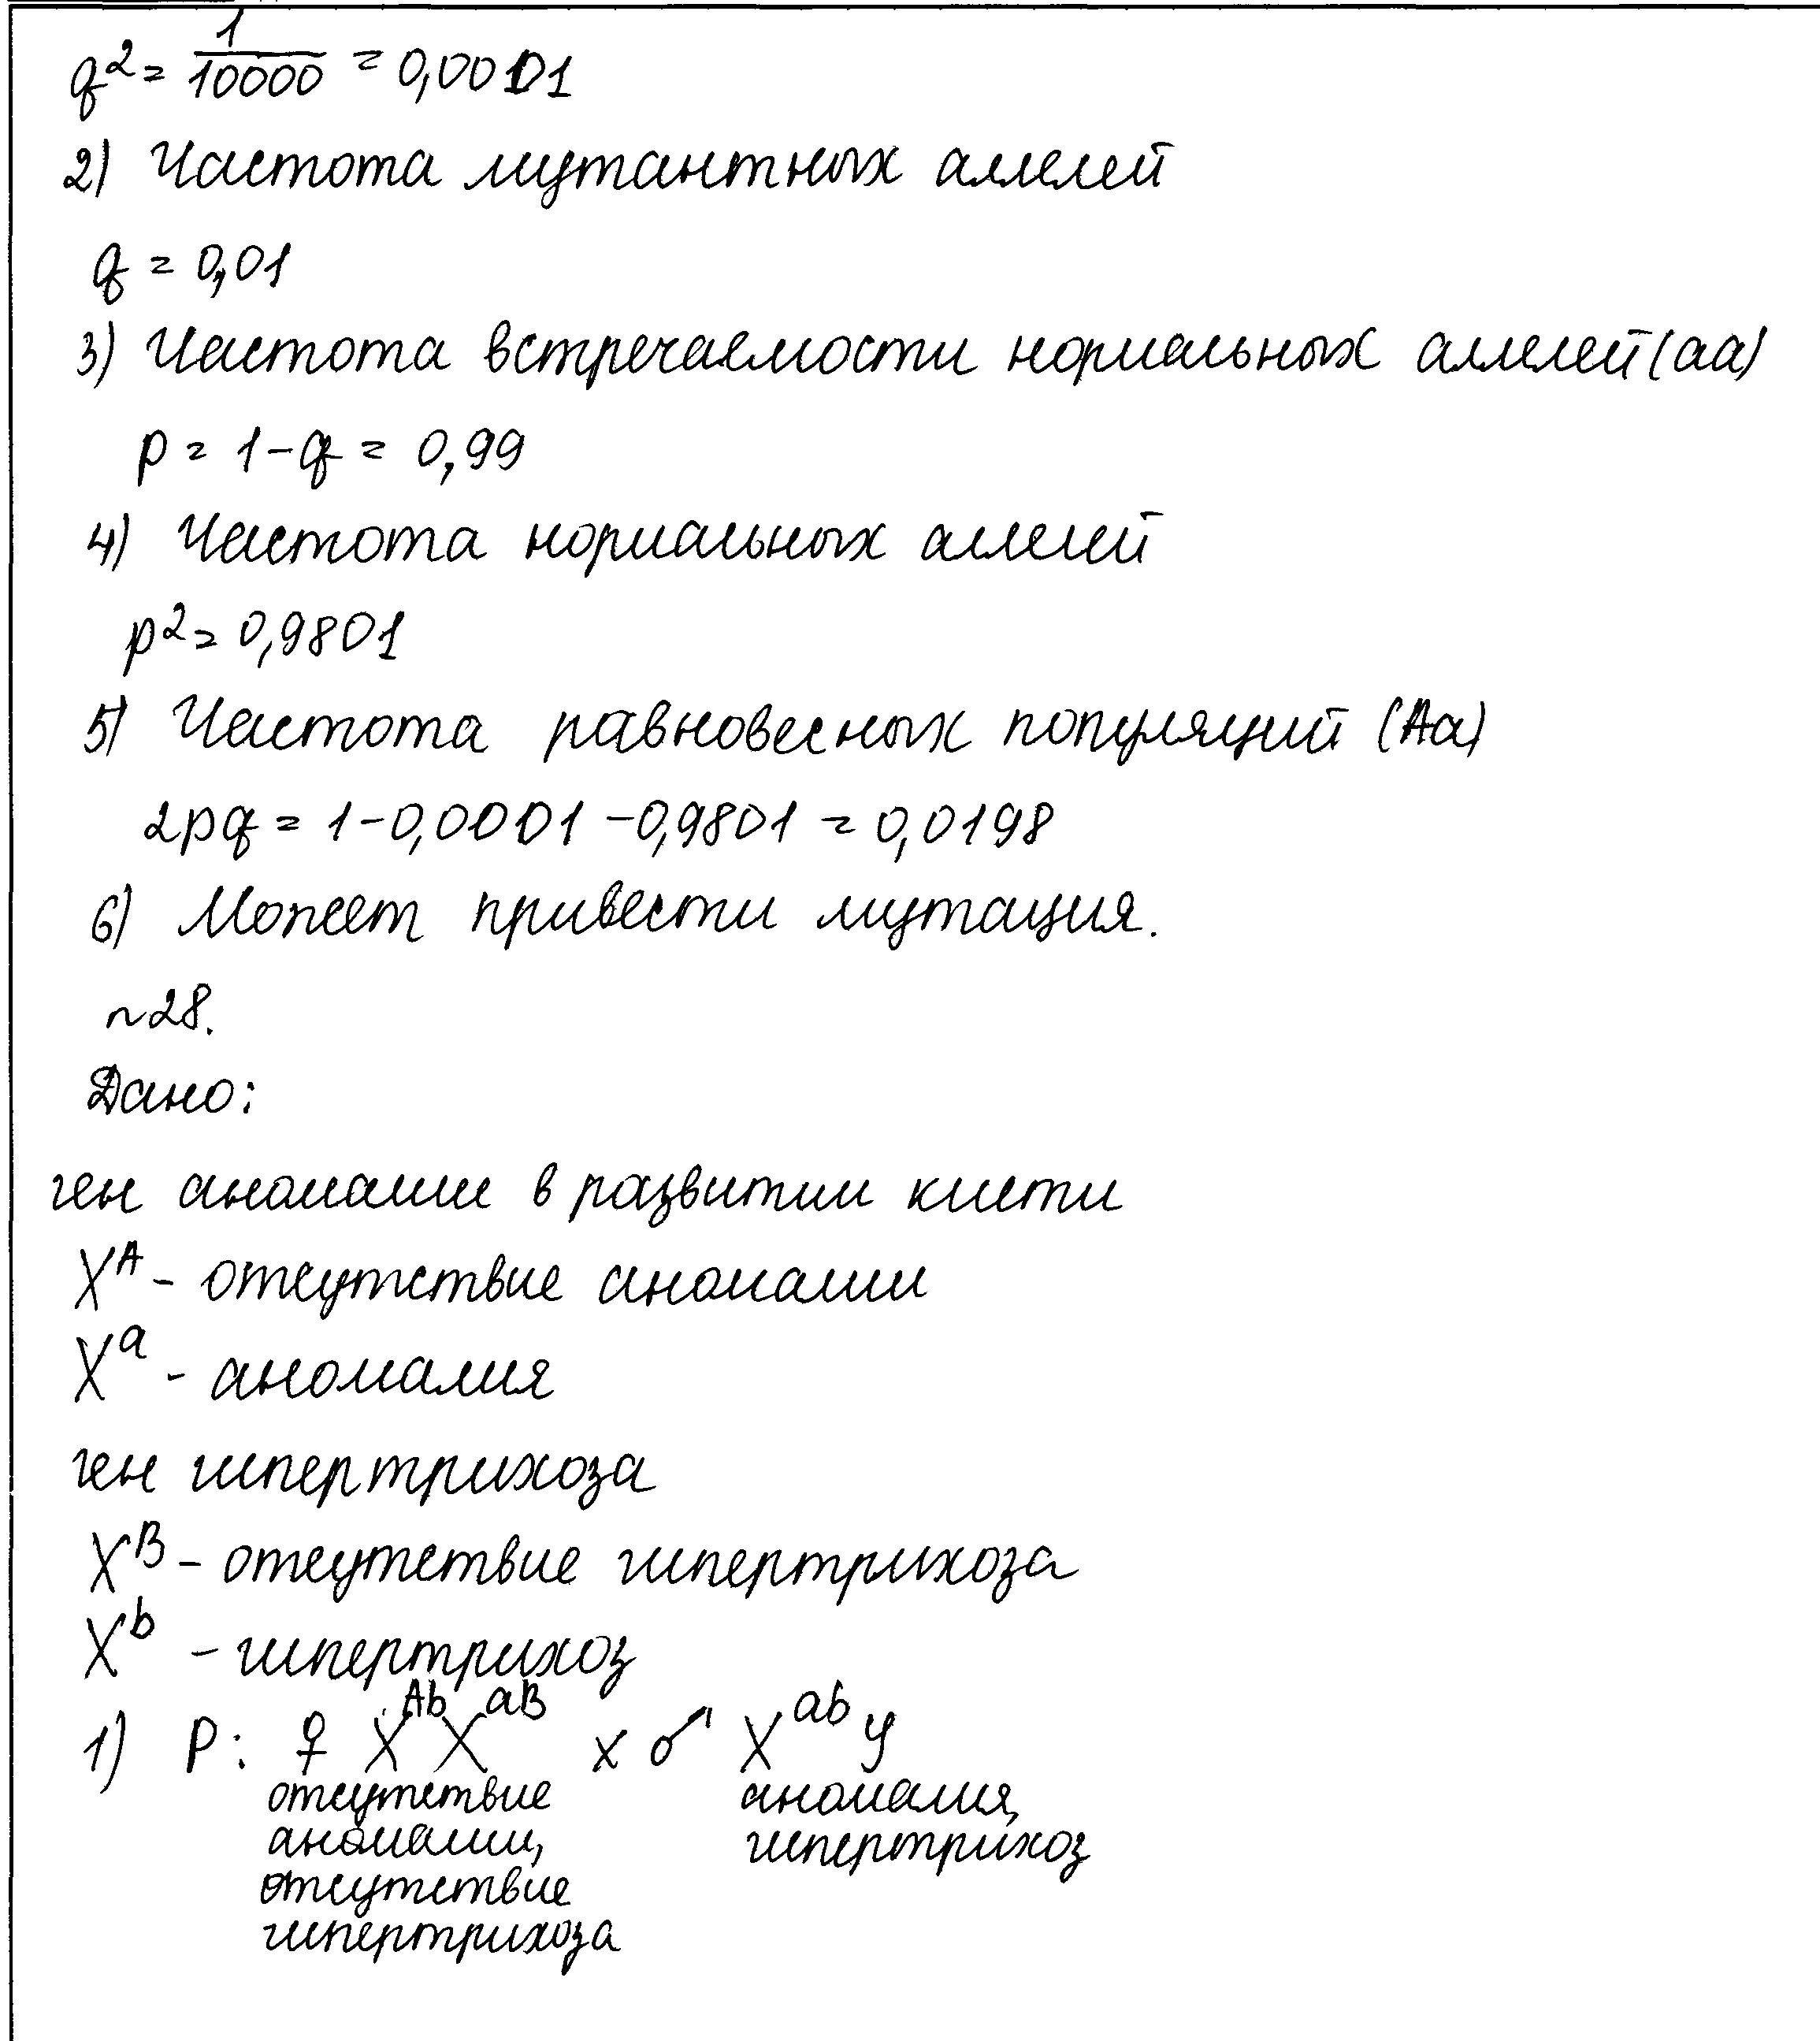 q² = 1/10000 = 0,0001
2) Частота мутантных аллелей
q = 0,01
3) Частота встречаемости нормальных аллелей (аа)
p = 1 - q = 0,99
4) Частота нормальных аллелей
p² = 0,9801
5) Частота равновесных популяций (Аа)
2pq = 1 - 0,0001 - 0,9801 = 0,0198
6) Может привести мутация.
~28.
Дано:
ген аномалии в развитии кисти
Xᴬ - отсутствие аномалии
Xᵃ - аномалия
ген гипертрихоза
Xᴮ - отсутствие гипертрихоза
Xᵇ - гипертрихоз
1) P: ♀ Xᴬᵇ Xᵃᴮ x ♂ Xᵃᵇ y
отсутствие аномалия,
аномалии, гипертрихоз
отсутствие
гипертрихоза